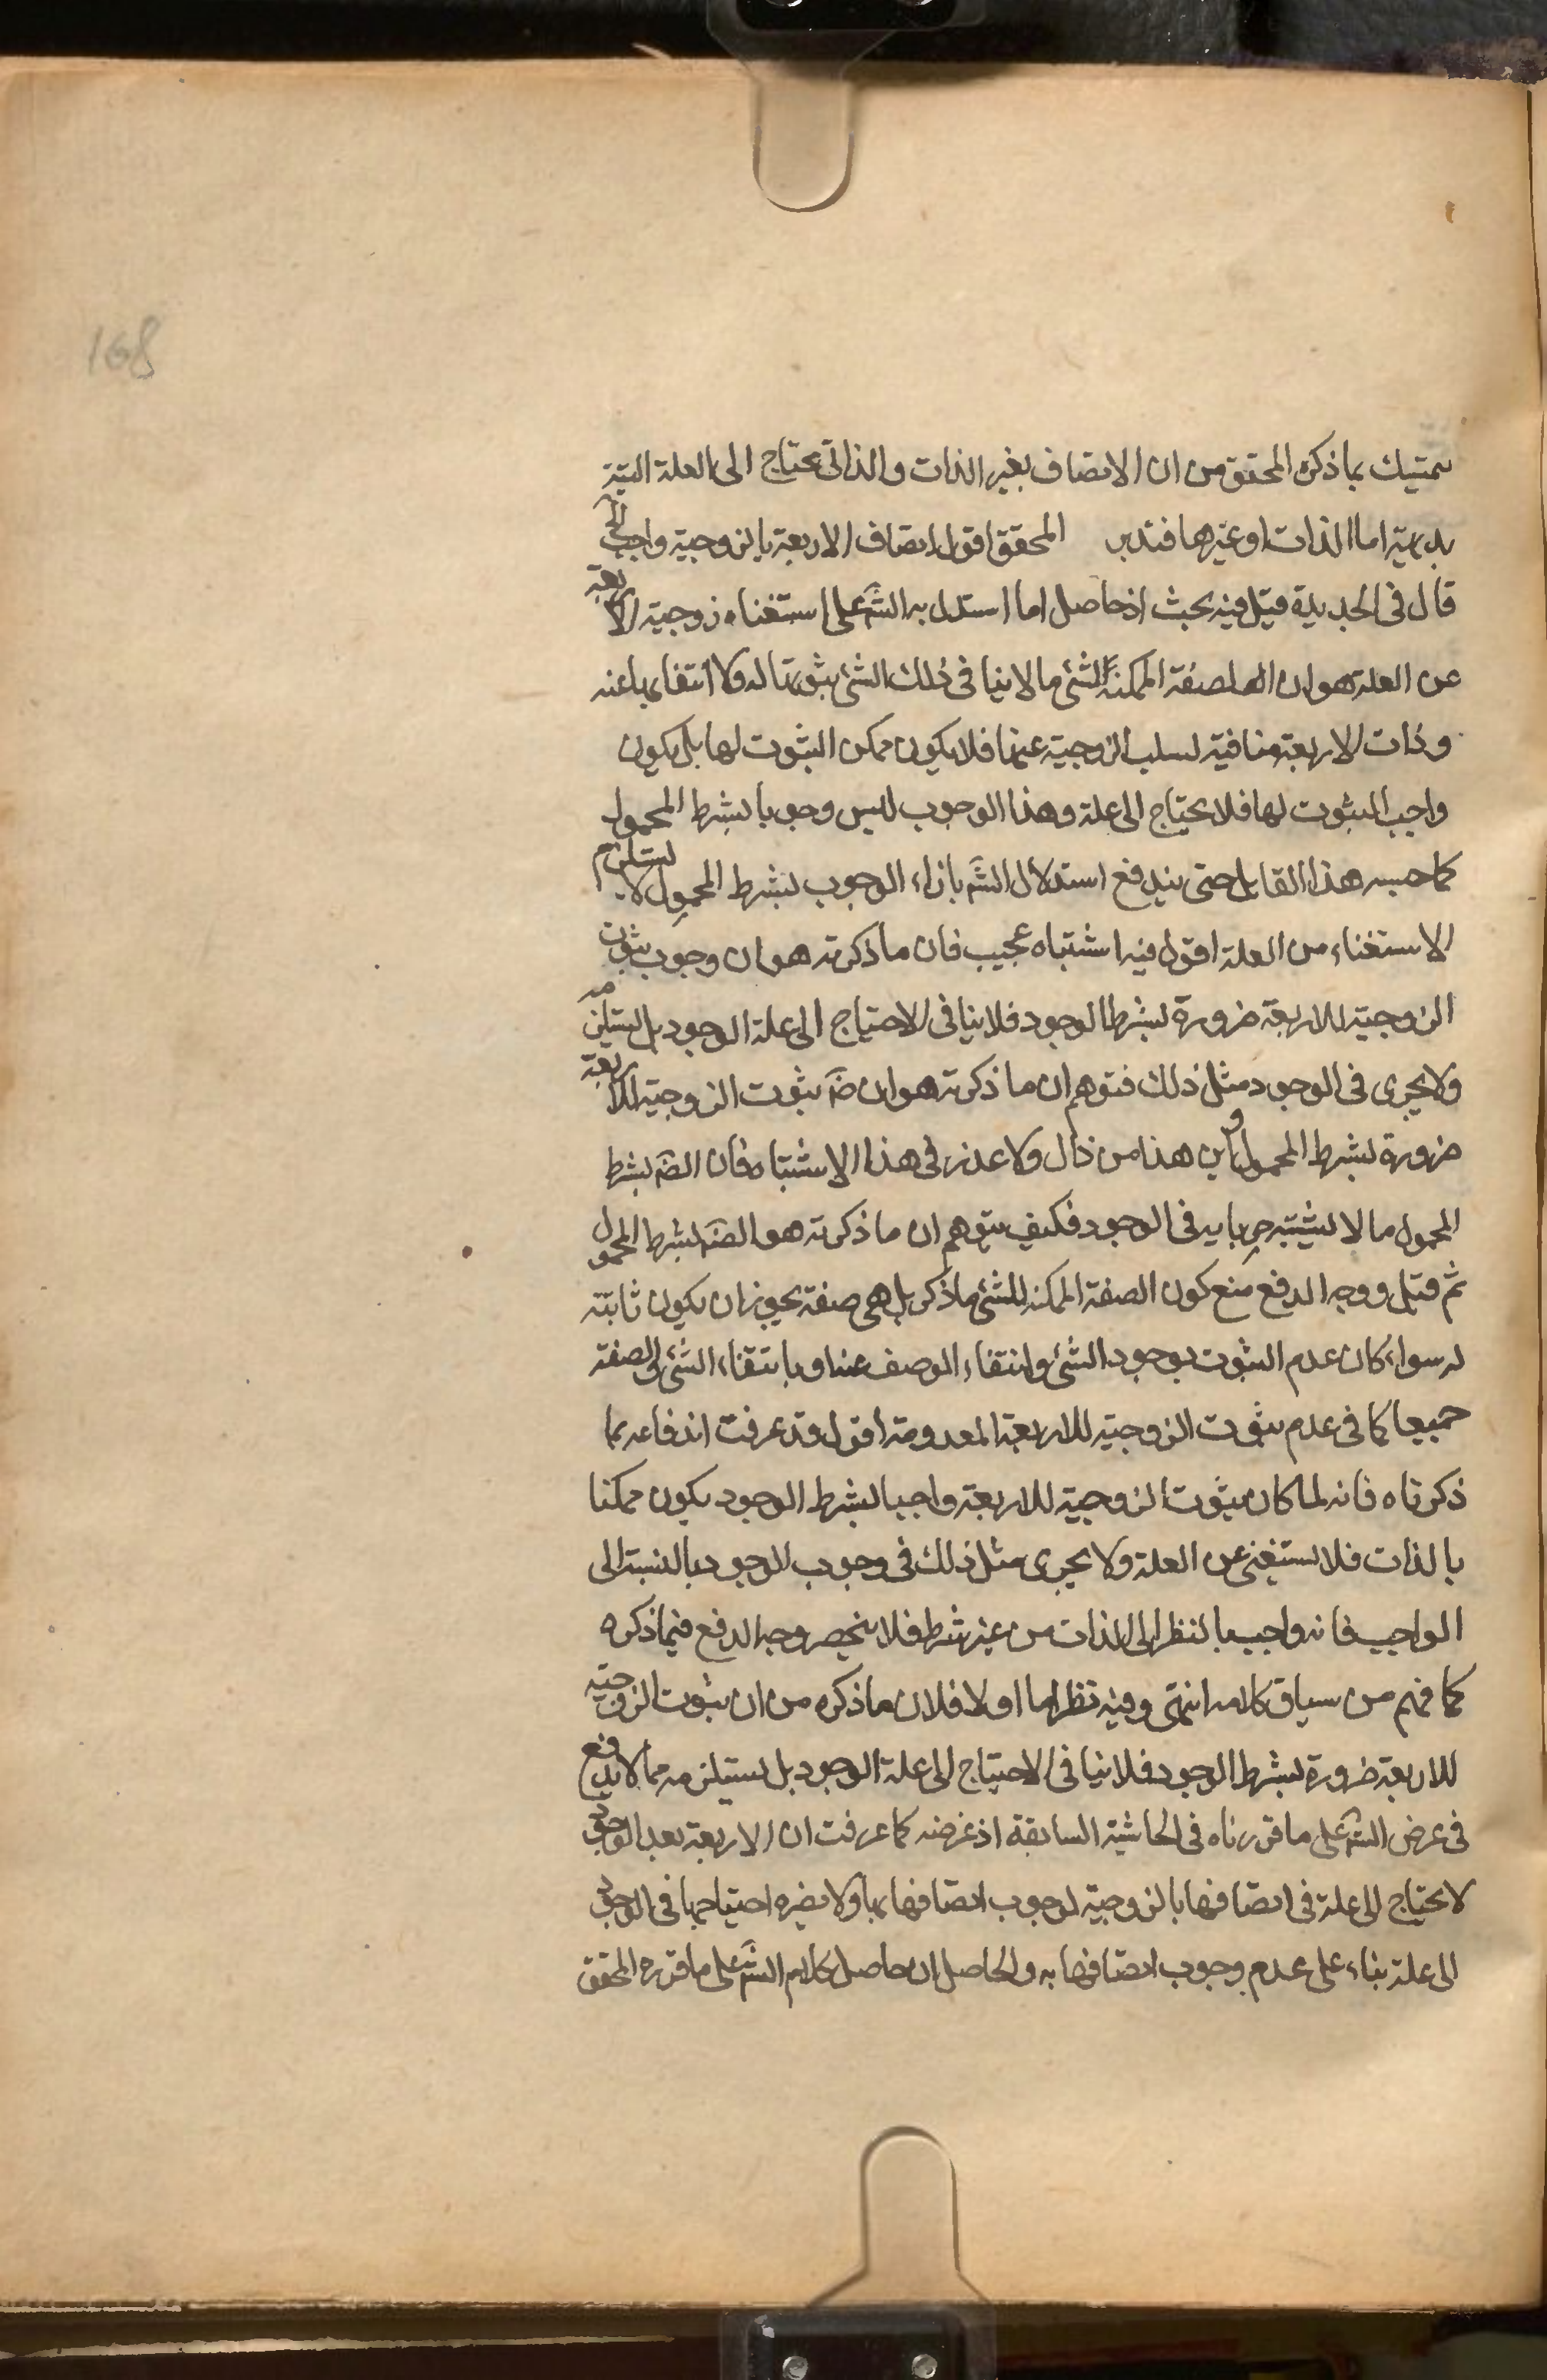 168
يتمسك بما ذكره المحقق من ان الاتصاف بغير الذات والذاتى يحتاج الى العلة البتة
بديهية اما الذات او غيرها فتدبر المحقق اقول اتصاف الاربعة بالزوجية واجب الخ
قال فى الجديدة قيل فيه بحث اذ حاصل اما استدل به الشَ على استغناء زوجية الاربعة
عن العلة هو ان الصفة الممكنة للشئ ما لا ينافى ذلك الشئ ثبوتها له ولا انتفاءها عنه
وذات الاربعة منافية لسلب الزوجية عنها فلا يكون ممكن الثبوت لها بل يكون
واجب الثبوت لها فلا يحتاج الى علة وهذا الوجوب ليس وجوبا بشرط المحمول
كما حسبه هذا القايل حتى يندفع استدلال الشَ بازاء الوجوب بشرط المحمول لا يستلزم
الاستغناء من العلة اقول فيه اشتباه عجيب فان ما ذكرته هو ان وجوب ثبوت
الزوجية للاربعة ضرورة بشرط الوجود فلا ينافى الاحتياج الى علة الوجود بل يستلزمه
ولا يجرى فى الوجود مثل ذلك فتوهم ان ما ذكرته هو ان ضَ ثبوت الزوجية للاربعة
ضرورة بشرط المحمول واين هذا من ذاك ولا عذر فى هذا الاشتباه فان الضَ بشرط
المحمول ما لا يشتبه جريانه فى الوجود فكيف يتوهم ان ما ذكرته هو الضَ بشرط المحمول
ثم قيل ووجه الدفع منع كون الصفة الممكنة للشئ ما ذكر بل هى صفة يجوز ان يكون ثابتة
له سواء كان عدم الثبوت بوجود الشئ وانتفاء الوصف عنه او بانتفاء الشئ والصفة
جميعا كما فى عدم ثبوت الزوجية للاربعة المعدومة اقول وقد عرفت اندفاعه بما
ذكرناه فانه لما كان ثبوت الزوجية للاربعة واجبا بشرط الوجود يكون ممكنا
بالذات فلا يستغنى عن العلة ولا يجرى مثل ذلك فى وجوب الوجود بالنسبة الى
الواجب فانه واجب بالنظر الى الذات من غير شرط فلا ينحصر وجه الدفع فيما ذكره
كما فهم من سياق كلامه انتهى وفيه نظر اما اولا فلان ما ذكره من ان ثبوت الزوجية
للاربعة ضرورة بشرط الوجود فلا ينافى الاحتياج الى علة الوجود بل يستلزمه مما لا يدفع
فى غرض الشَ على ما قررناه فى الحاشية السابقة اذ غرضه كما عرفت ان الاربعة بعد الوجود
لا يحتاج الى علة فى اتصافها بالزوجية لوجوب اتصافها بها ولا يضره احتياجها فى الوجود
الى علة بناء على عدم وجوب اتصافها به والحاصل ان حاصل كلام الشَ على ما قرره المحقق